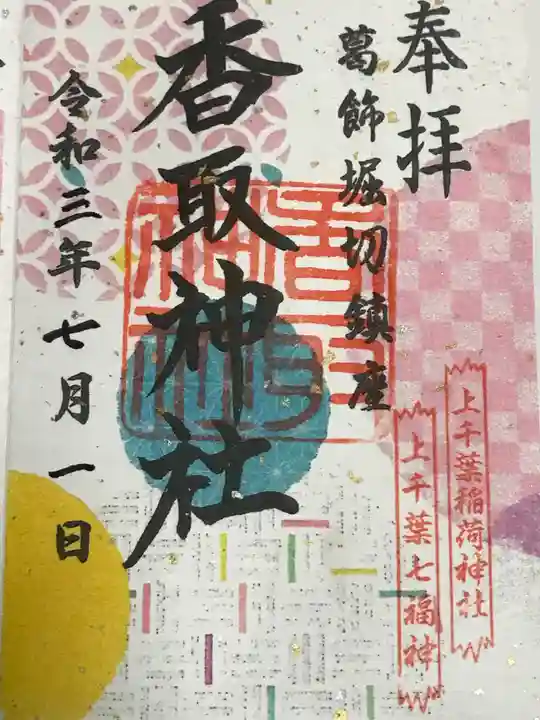 奉拝
葛飾堀切鎮座
香取神社
令和三年七月一日
香取神社
上千葉稲荷神社
上千葉七福神